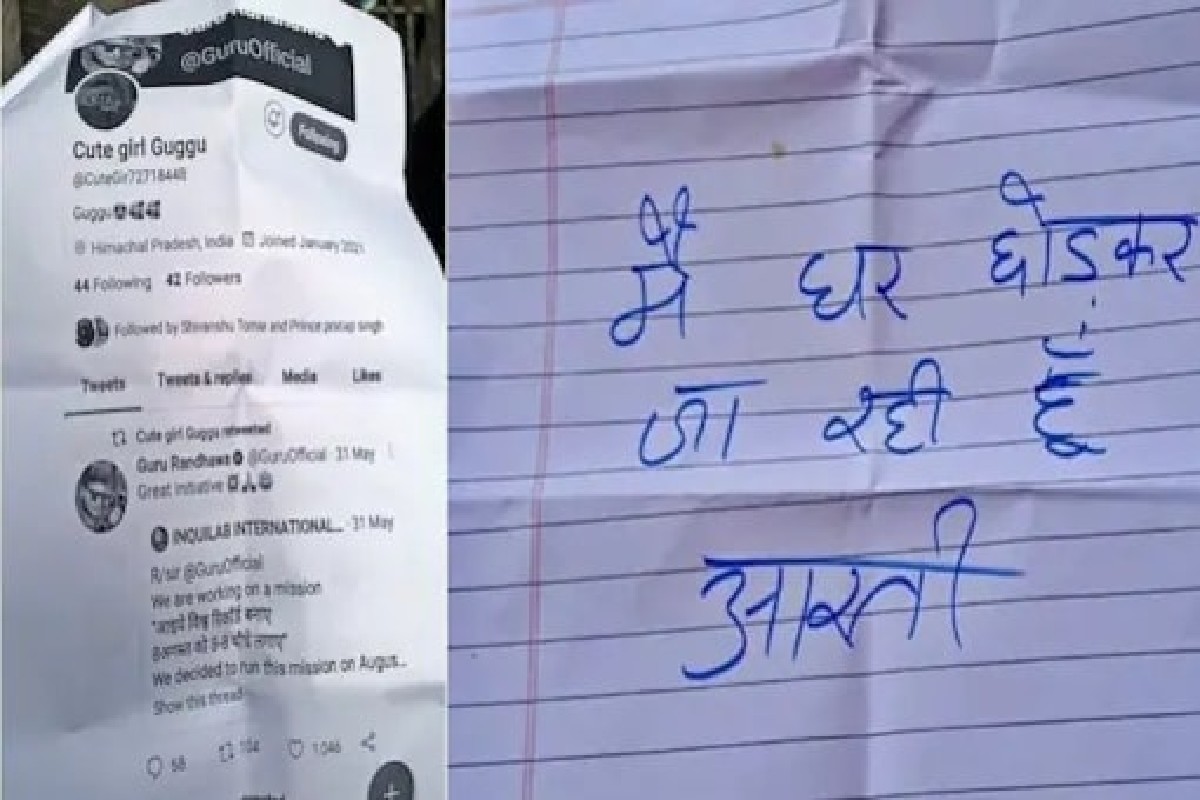 @GuruOfficial
Following
Cute girl Guggu
@CuteGir72718448
Guggu
Himachal Pradesh, India Joined January 2021
44 Following 42 Followers
Followed by Shivanshu Tomar and Prince pratap singh
Tweets Tweets & replies Media Likes
Cute girl Guggu retweeted
Guru Randhawa @GuruOfficial · 31 May
Great initiative
INQUILAB INTERNATIONAL... · 31 May
R/sir @GuruOfficial
We are working on a mission
"आइये विश्व रिकॉर्ड बनाए
8अगस्त को 8-8 पौधे लगाए"
We decided to run this mission on Augus...
Show this thread
58 104 1,046
मैं घर छोड़कर
जा रही हूँ
आरती